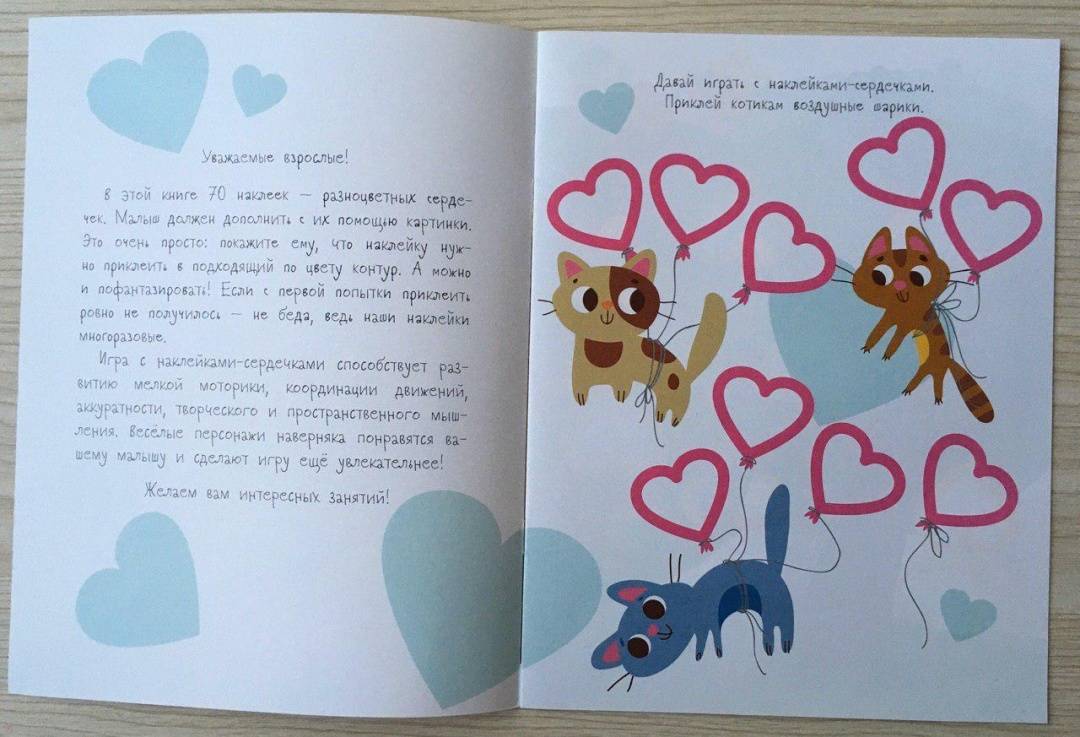 Уважаемые взрослые!
В этой книге 70 наклеек — разноцветных серде-
чек. Малыш должен дополнить с их помощью картинки.
Это очень просто: покажите ему, что наклейку нуж-
но приклеить в подходящий по цвету контур. А можно
и пофантазировать! Если с первой попытки приклеить
ровно не получилось — не беда, ведь наши наклейки
многоразовые.
Игра с наклейками-сердечками способствует раз-
витию мелкой моторики, координации движений,
аккуратности, творческого и пространственного мыш-
ления. Весёлые персонажи наверняка понравятся ва-
шему малышу и сделают игру ещё увлекательнее!
Желаем вам интересных занятий!
Давай играть с наклейками-сердечками.
Приклей котикам воздушные шарики.